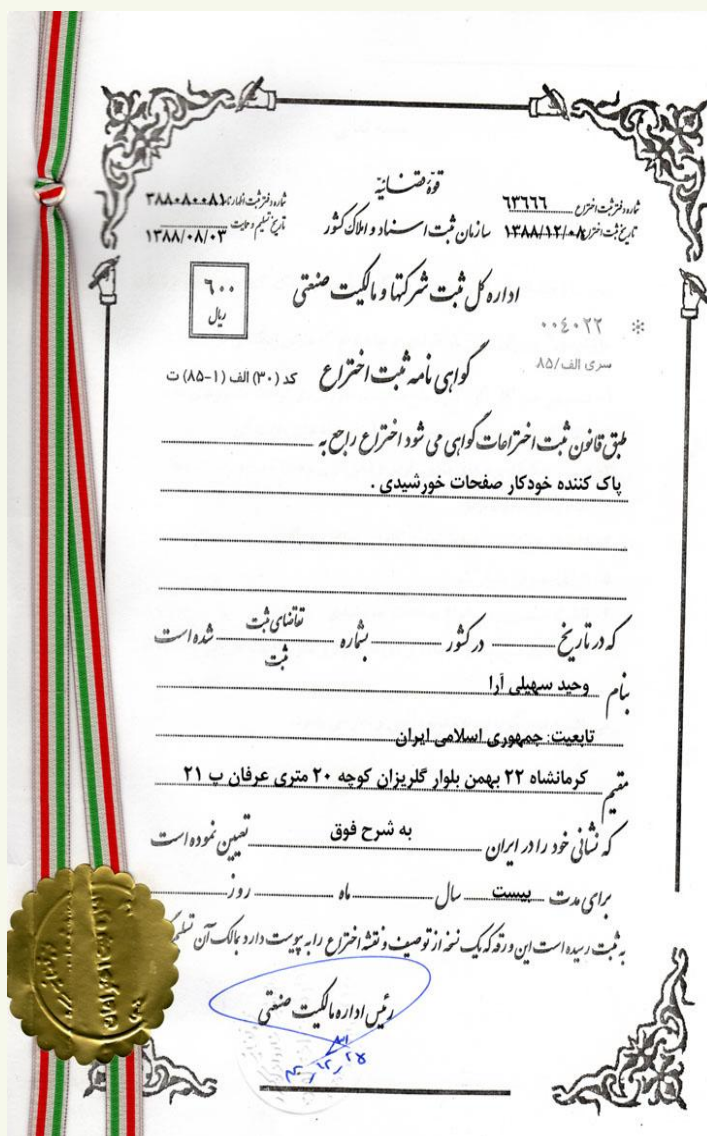 قوهٔ قضائیه
سازمان ثبت اسناد و املاک کشور
شماره دفتر ثبت اختراع ۶۳۶۶۶
تاریخ ثبت اختراع ۱۳۸۸/۱۲/۰۸
شماره دفتر ثبت اظهارنامه ۳۸۸۰۸۰۰۸۱
تاریخ تسلیم و حمایت ۱۳۸۸/۰۸/۰۳
اداره کل ثبت شرکتها و مالکیت صنعتی
۶۰۰
ریال
۰۰٤۰۲۲
سری الف/۸۵
گواهی نامه ثبت اختراع کد (۳۰) الف (۱-۸۵) ت
طبق قانون ثبت اختراعات گواهی می شود اختراع راجع به
پاک کننده خودکار صفحات خورشیدی .
که در تاریخ در کشور بشماره تقاضای ثبت شده است
ثبت
بنام وحید سهیلی آرا
تابعیت: جمهوری اسلامی ایران
مقیم کرمانشاه ۲۲ بهمن بلوار گلریزان کوچه ۲۰ متری عرفان پ ۲۱
که نشانی خود را در ایران به شرح فوق تعیین نموده است
برای مدت بیست سال ماه روز
به ثبت رسیده است این ورقه که یک نسخه از توصیف و نقشه اختراع را به پیوست دارد بمالک آن
رئیس اداره مالکیت صنعتی